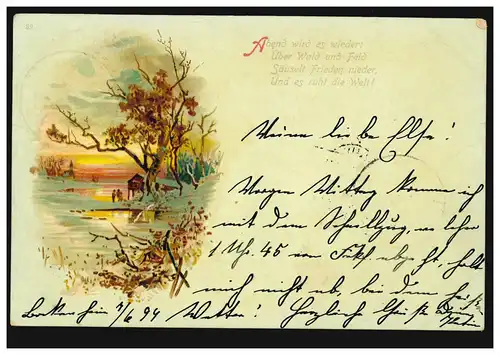 Abend wird es wieder:
Über Wald und Feld
Säuselt Frieden nieder,
Und es ruht die Welt!
Meine liebe Else!
Morgen Mittag komme ich
mit dem Schnellzug,
1 Uhr 45 von abgeht, holt
mich nicht ab bei dem
Bockenheim 7/6 94 Wetter! Herzlich